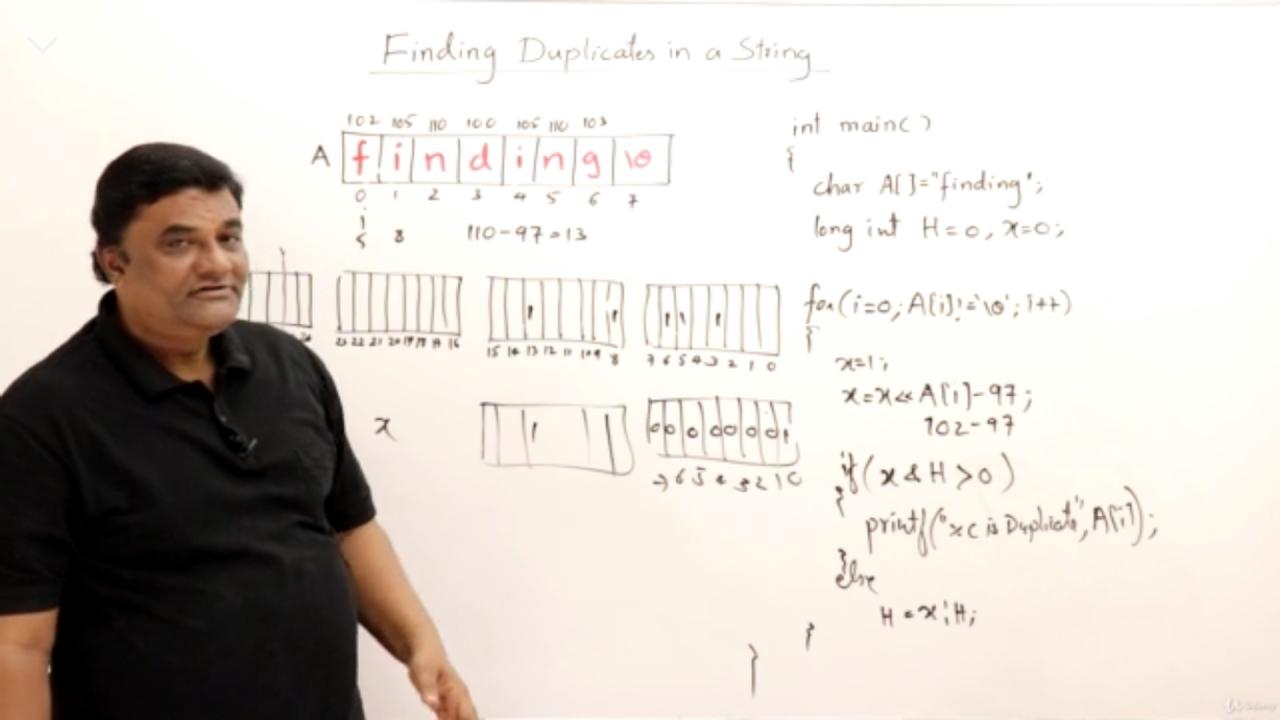 Finding Duplicates in a String
102 105 110 100 105 110 103
A f i n d i n g \0
0 1 2 3 4 5 6 7
5 8 110-97=13
23 22 21 20 19 18 17 16
15 14 13 12 11 10 9 8
7 6 5 4 3 2 1 0
x 1 0 0 0 0 0 0 0 1
7 6 5 4 3 2 1 0
int main()
{
char A[]="finding";
long int H=0, x=0;
for(i=0; A[i]!='\0'; i++)
{
x=1;
x=x<<A[i]-97;
102-97
if(x & H > 0)
{
printf("%c is Duplicate", A[i]);
}
else
H = x|H;
}
}
Udemy